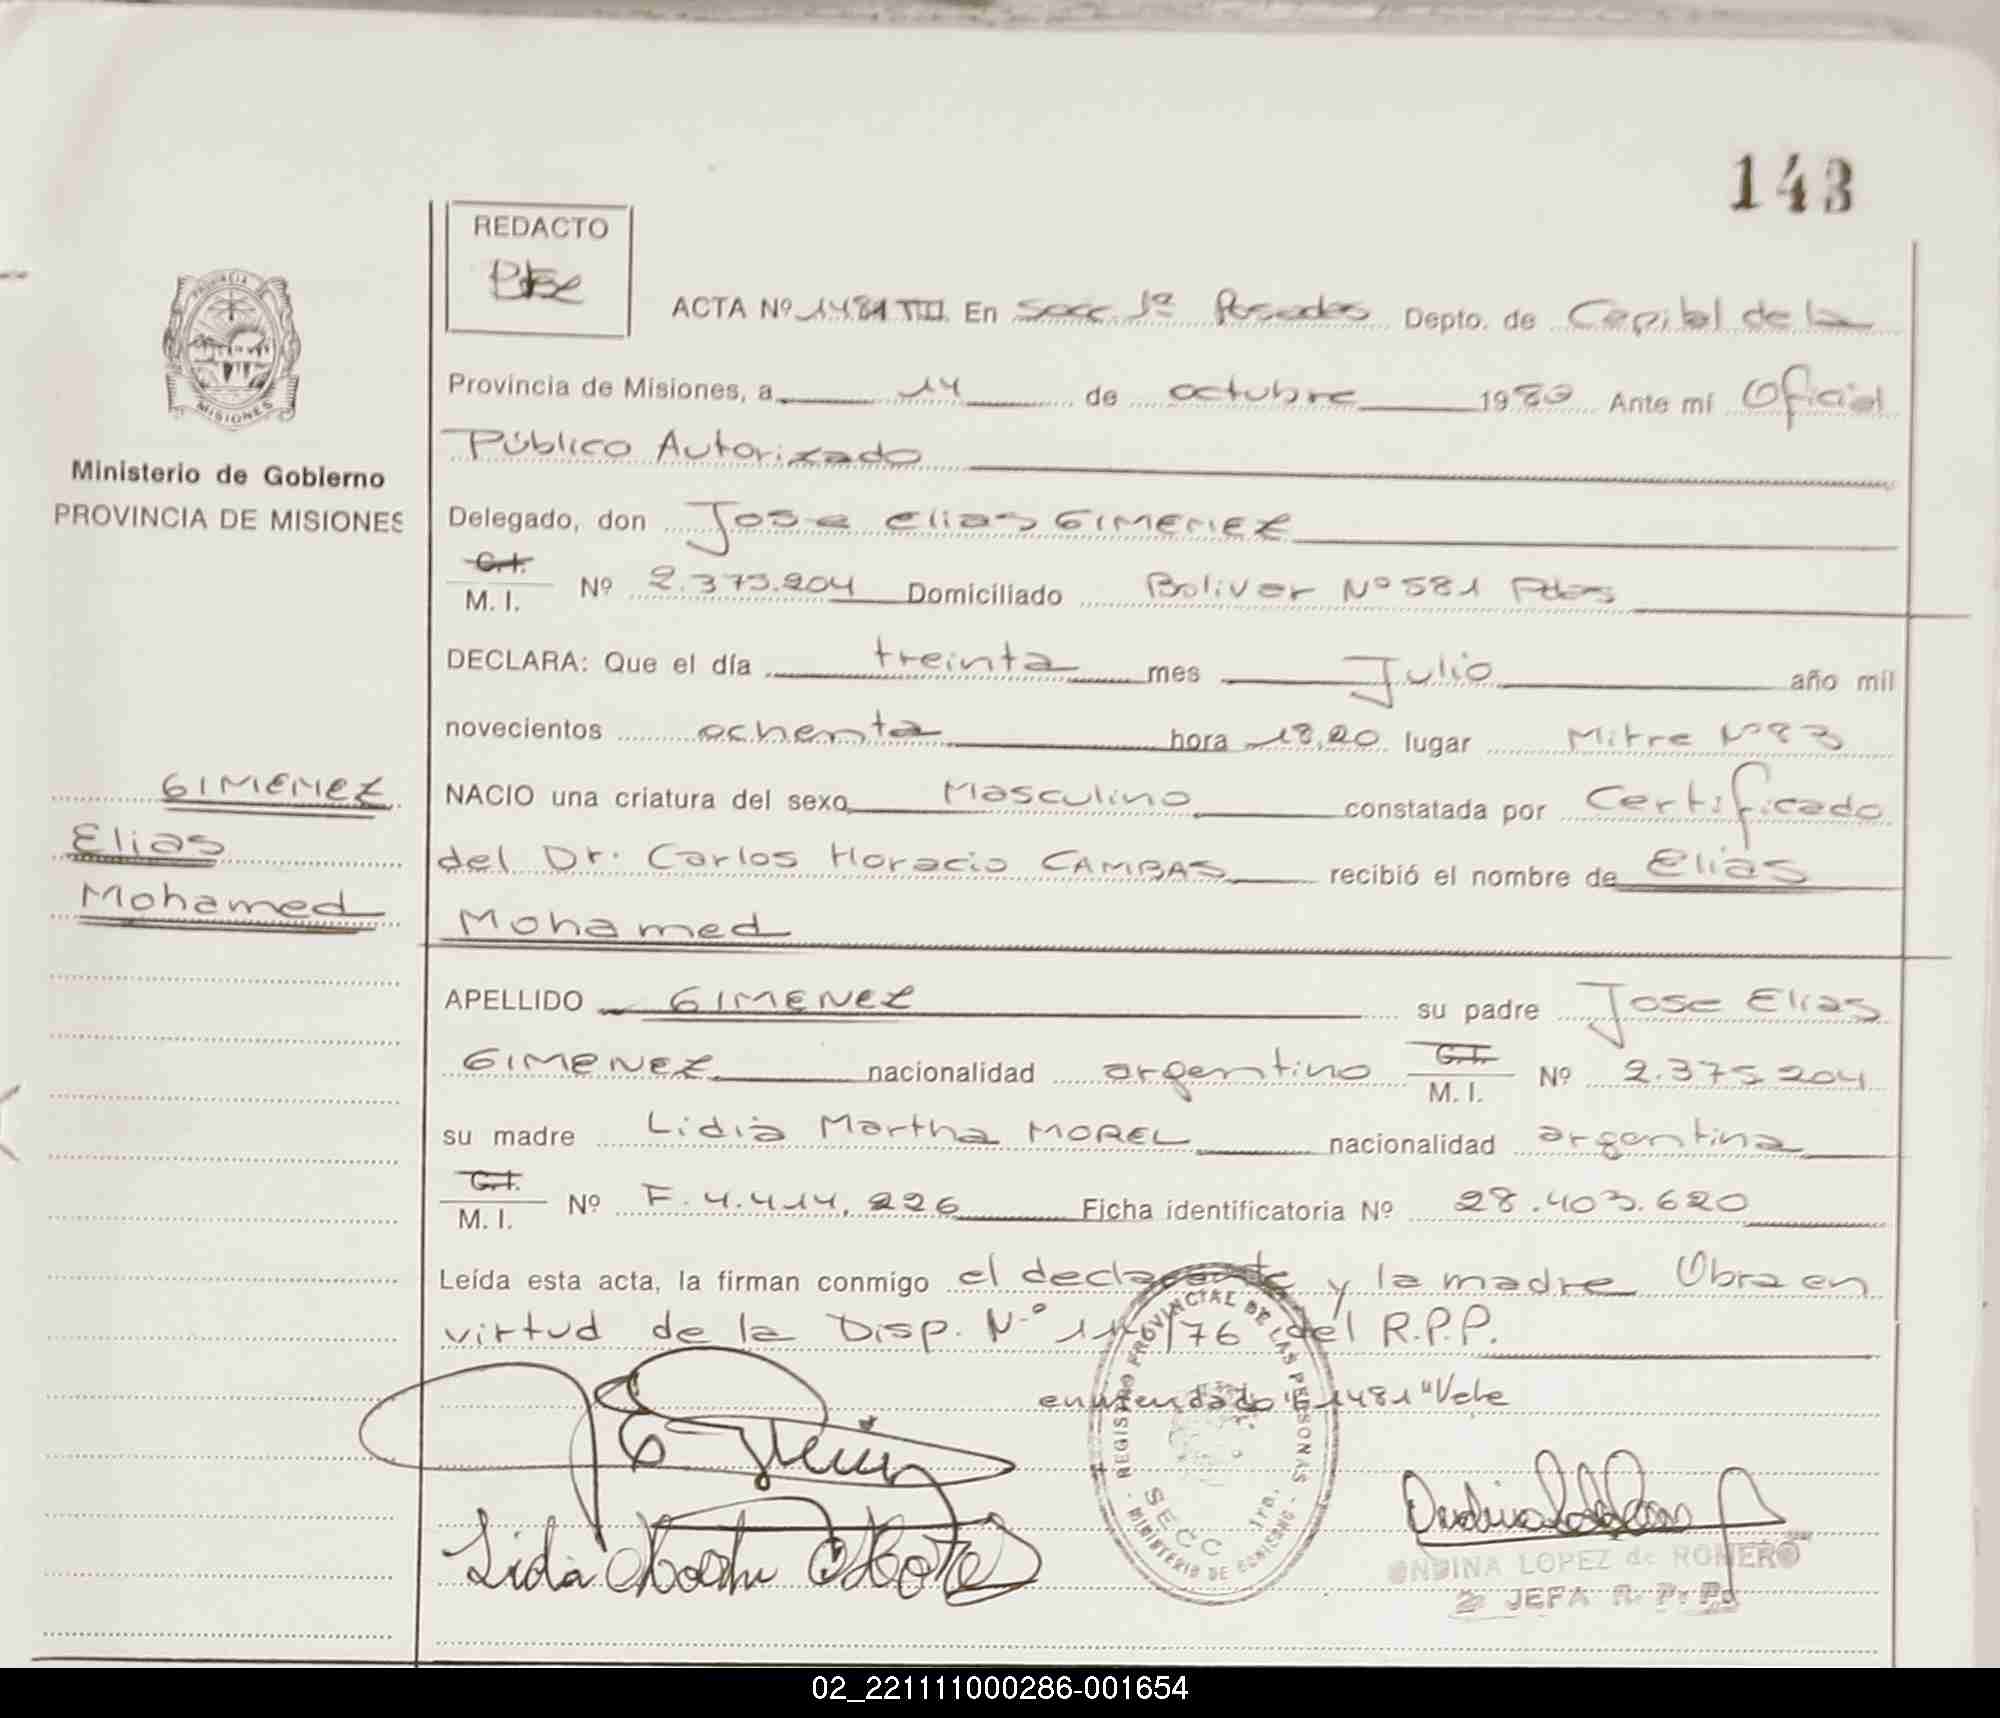 143
REDACTO
PROVINCIA
MISIONES
ACTA Nº 1481 TIII En Secc. 1ª Posadas Depto. de Capital de la
Provincia de Misiones, a 14 de octubre 1980 Ante mí Oficial
Público Autorizado
Ministerio de Gobierno
PROVINCIA DE MISIONES
Delegado, don Jose Elias GIMENEZ
C.I.
M. I. Nº 2.375.204 Domiciliado Bolivar Nº 581 Pdas
DECLARA: Que el día treinta mes Julio año mil
novecientos ochenta hora 18,20 lugar Mitre Nº 83
GIMENEZ
Elias
Mohamed
NACIO una criatura del sexo Masculino constatada por Certificado
del Dr. Carlos Horacio CAMBAS recibió el nombre de Elias
Mohamed
APELLIDO GIMENEZ su padre Jose Elias
GIMENEZ nacionalidad argentino C.I. M. I. Nº 2.375.204
su madre Lidia Martha MOREL nacionalidad argentina
C.I.
M. I. Nº F. 4.414.226 Ficha identificatoria Nº 28.403.620
Leída esta acta, la firman conmigo el declarante y la madre Obra en
virtud de la Disp. N.º /76 del R.P.P.
enmendado "1481" Vale
REGISTRO PROVINCIAL DE LAS PERSONAS
SECC 1ra.
MINISTERIO DE GOBIERNO
Lidia
ONDINA LOPEZ de ROMERO
2º JEFA R. P. P.
02_221111000286-001654